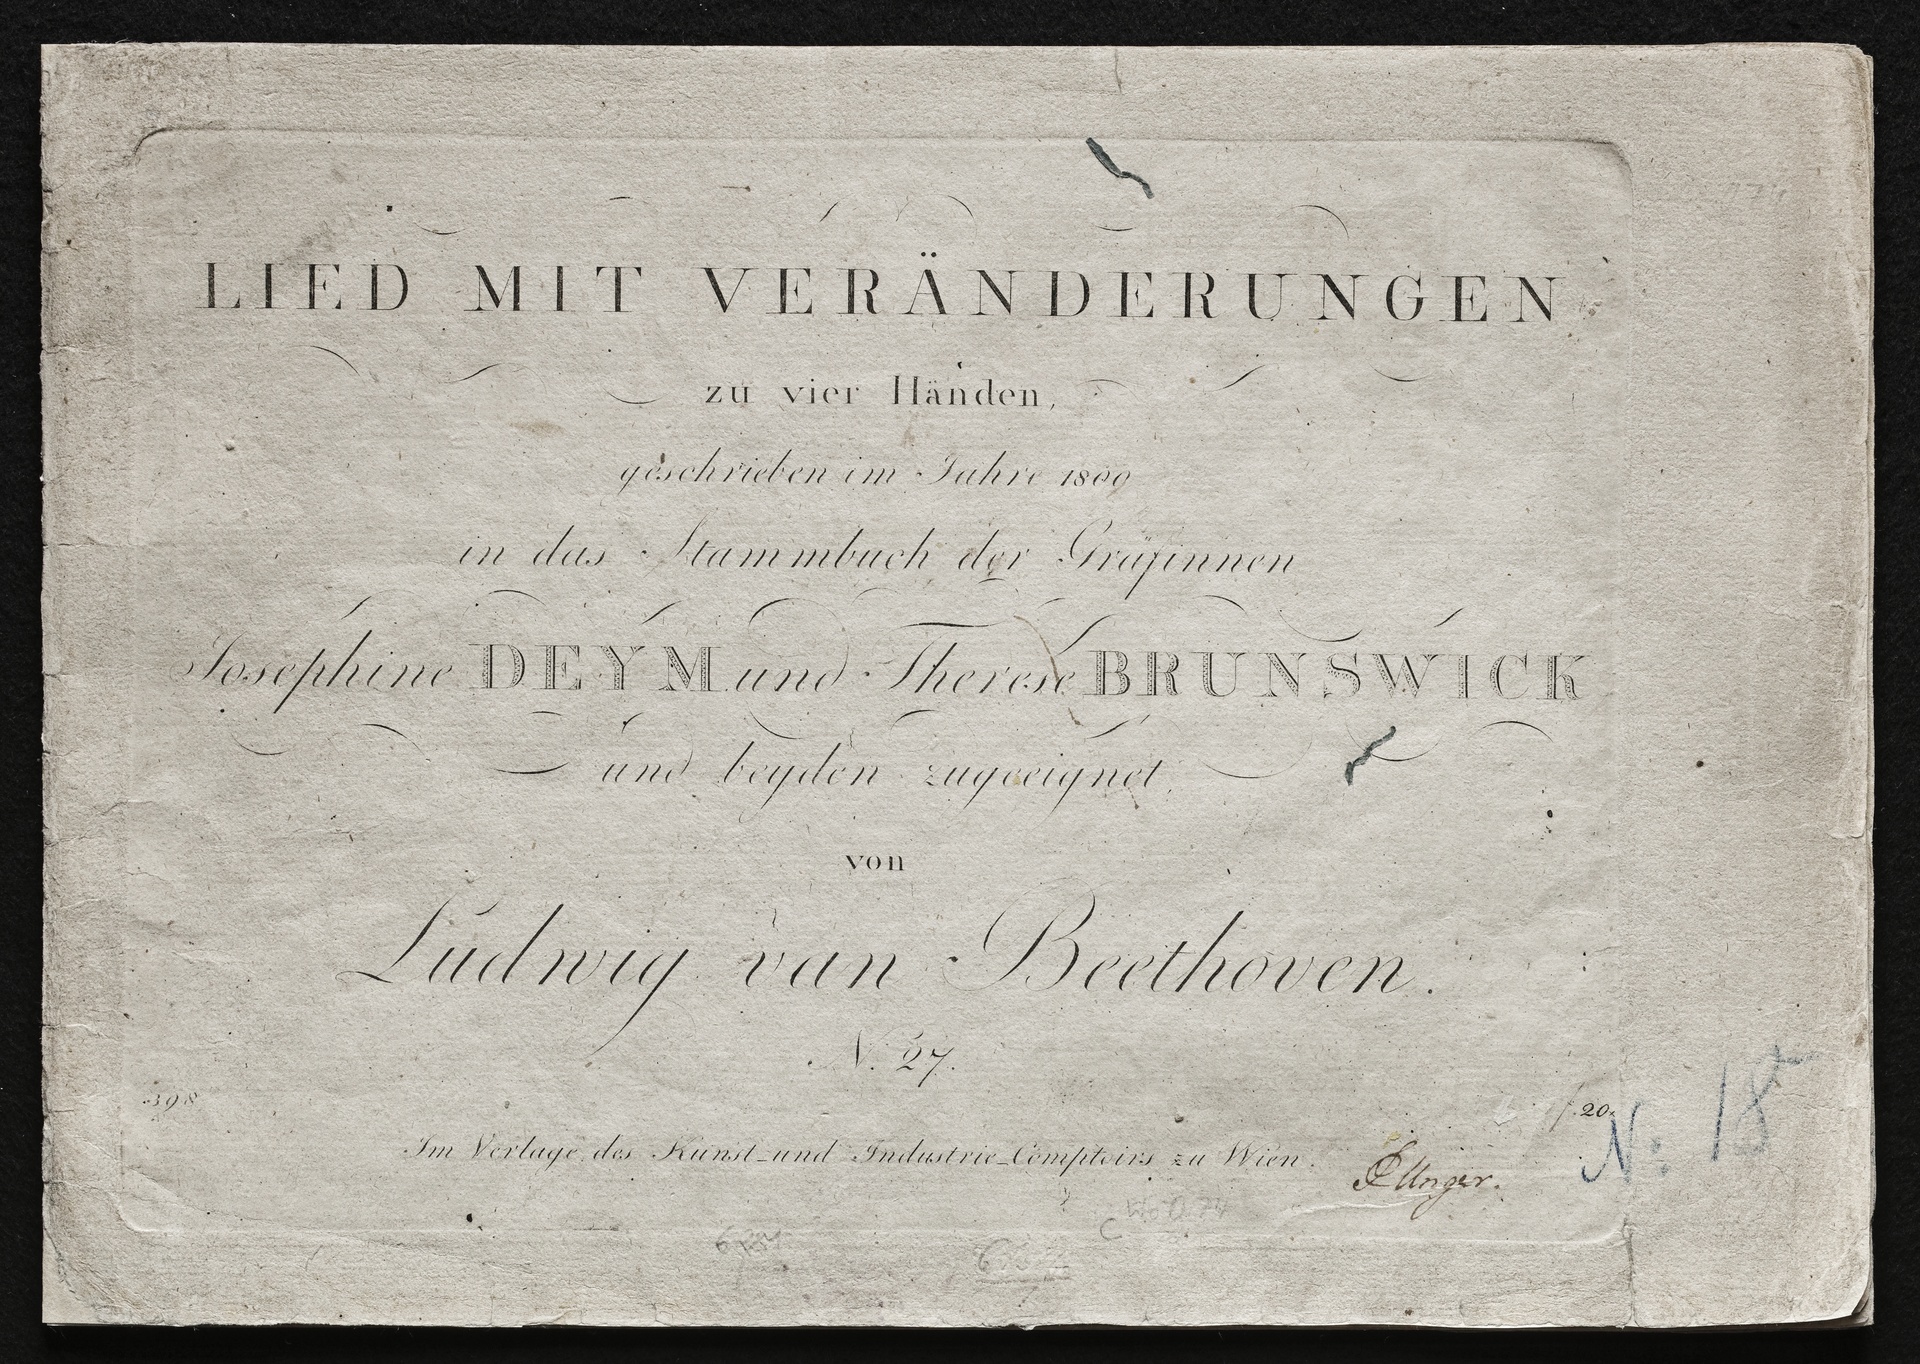 LIED MIT VERÄNDERUNGEN
zu vier Händen,
geschrieben im Jahre 1809
in das Stammbuch der Gräfinnen
Josephine DEYM und Therese BRUNSWICK
und beyden zugeeignet,
von
Ludwig van Beethoven.
N. 27.
398
f. 20x
N: 18
Im Verlage des Kunst-und Industrie-Comptoirs zu Wien.
Unger.
WoO 74